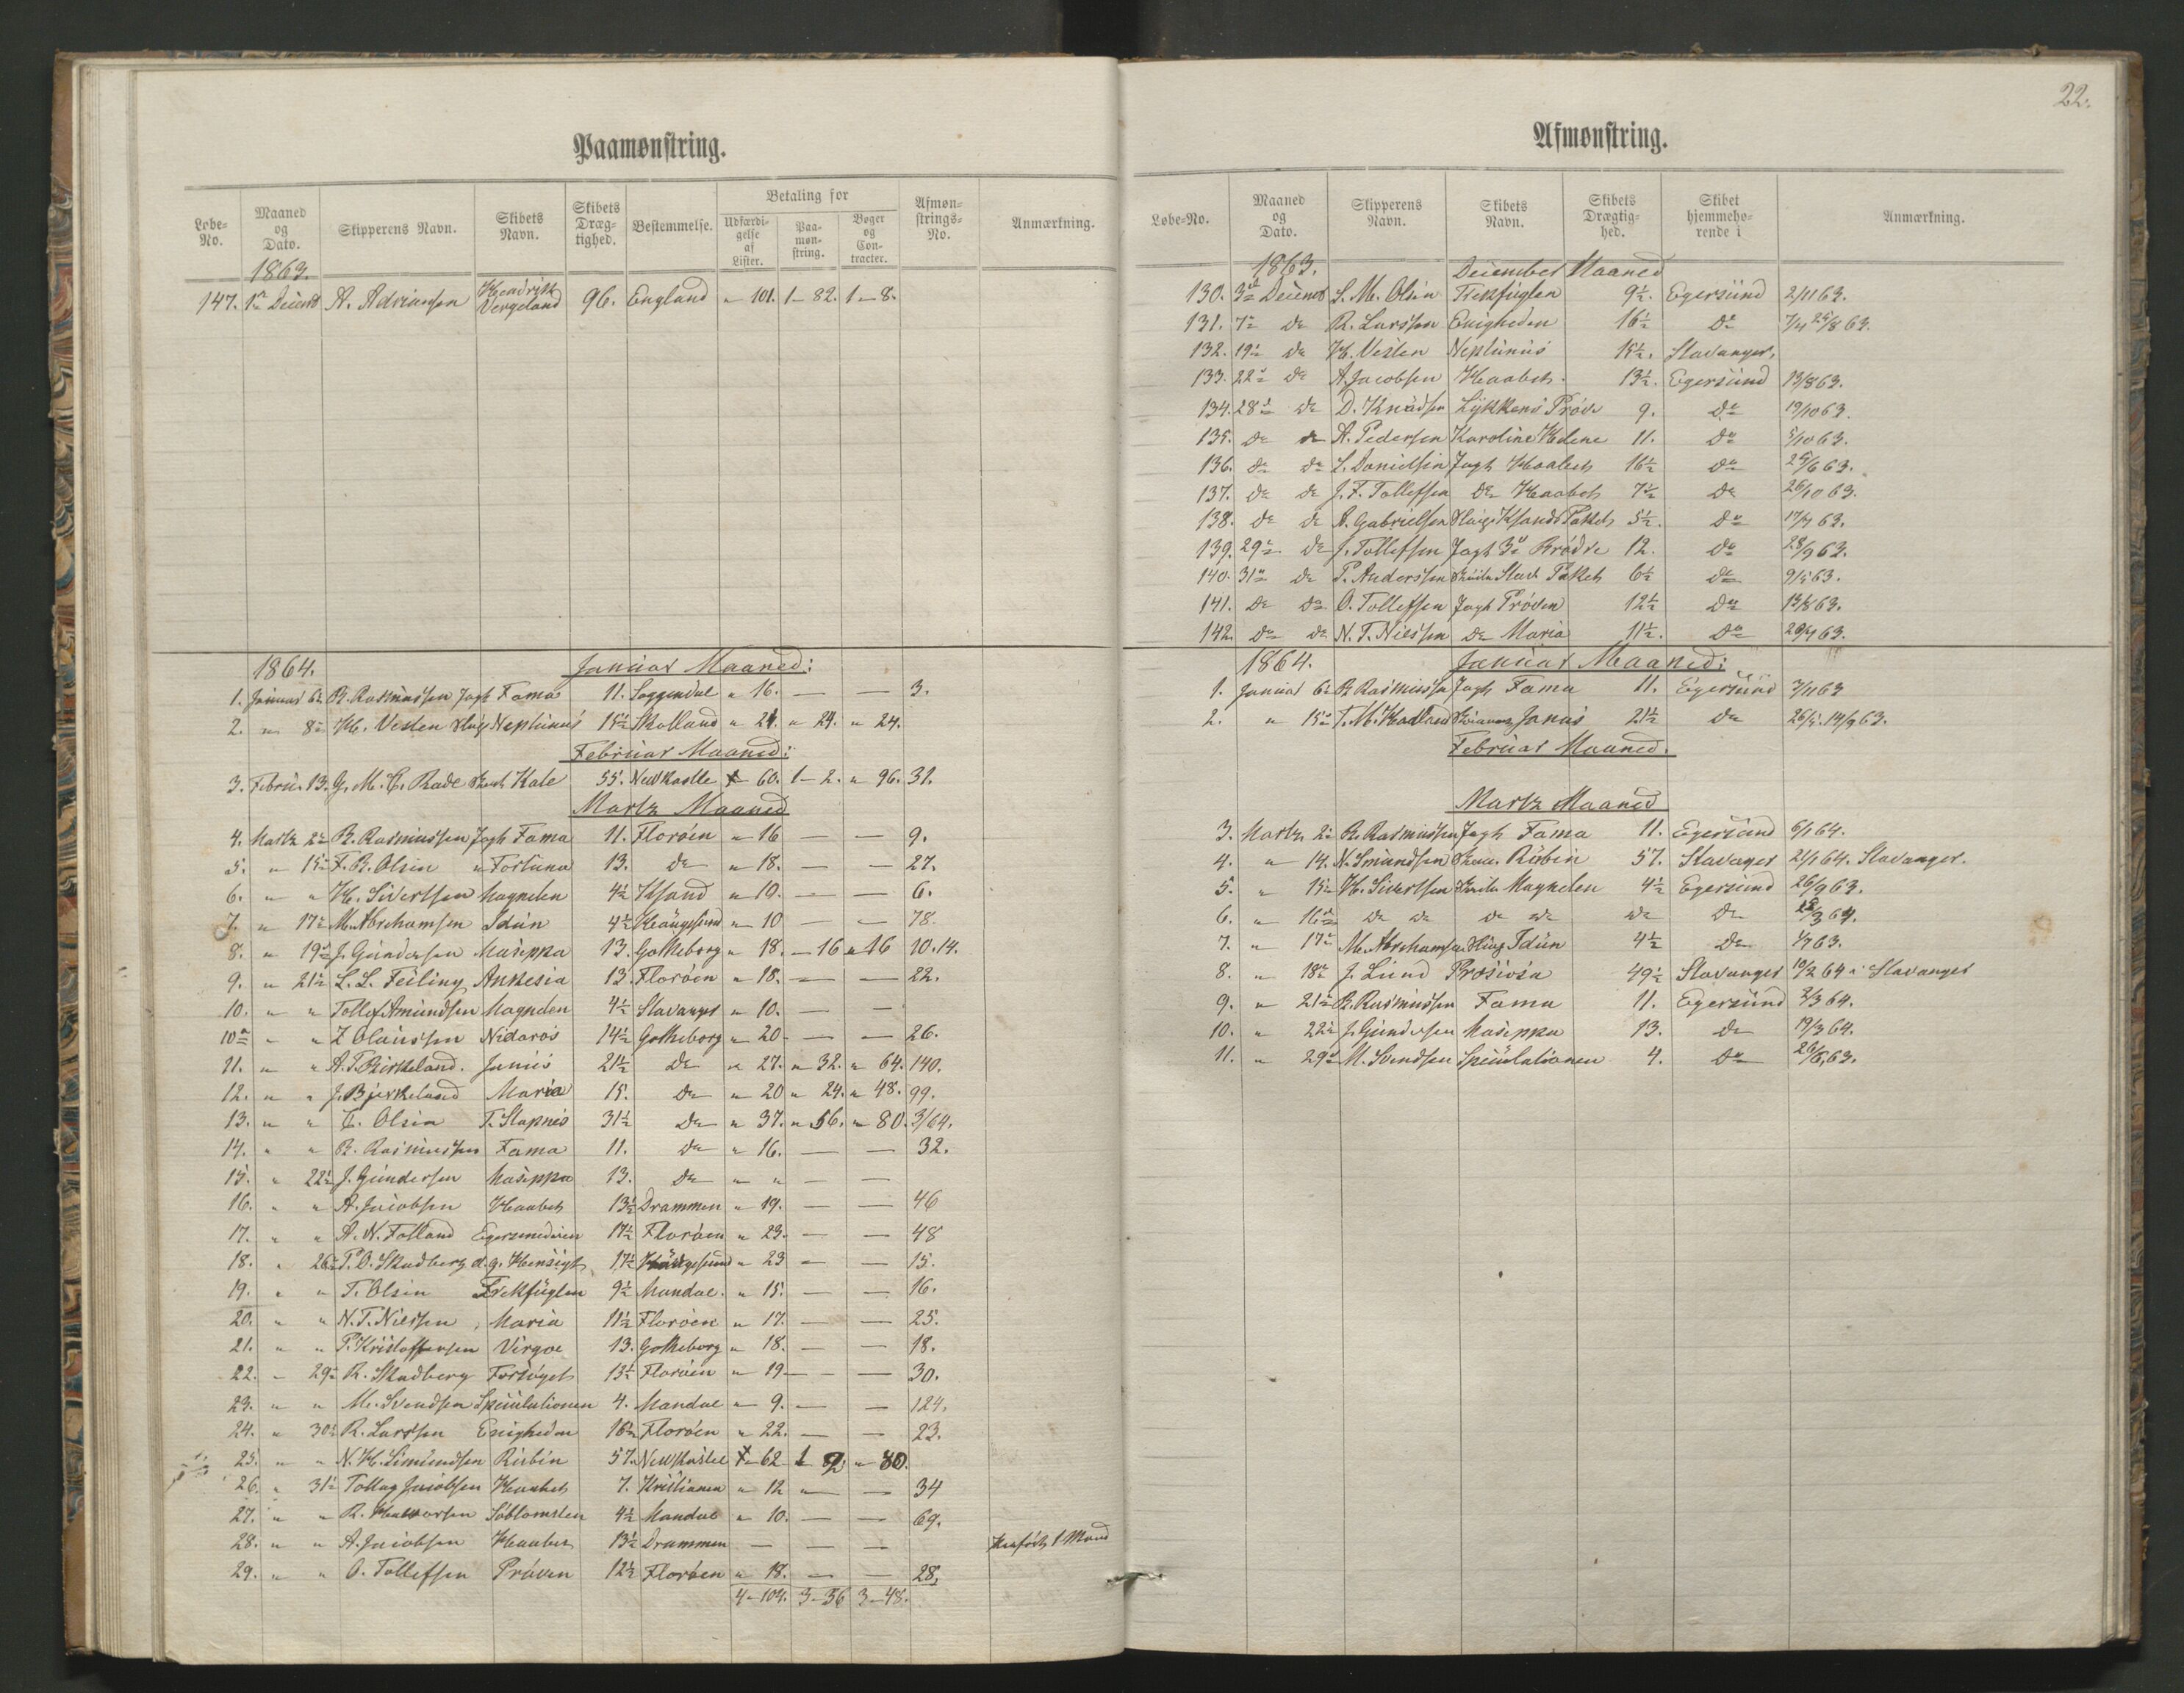 22.
Paamønstring.
Løbe-No. | Maaned og Dato. | Skipperens Navn. | Skibets Navn. | Skibets Drægtighed. | Bestemmelse. | Betaling for Udfærdigelse af Lister. | Paamønstring. | Bøger og Contracter. | Afmønstrings-No. | Anmærkning.
1863.
147. 1ste Decembr A. Adriansen Hendrik Vergeland 96. England " 101. 1 - 82. 1 - 8.
1864. Januar Maaned:
1. Januar 6te R. Rasmussen Jagt Fama 11. Soggendal " 16. — — 3.
2. " 8de H. Vesten Slup Neptunus 15½ Skotland " 21. " 24. " 24.
Februar Maaned:
3. Febru. 13. G. M. C. Rade Kate 55. Newkastle 60. 1 - 2. " 96. 31.
Martz Maaned
4. Martz 2de R. Rasmussen Jagt Fama 11. Florøen " 16 — — 9.
5. " 15de F. B. Olsen " Fortuna 13. do " 18. — — 27.
6. " " H. Sivertsen Magneten 4½ Ksand " 10. — — 6.
7. " 17de M. Abrahamsen Idun 4½ Haugesund " 10 — — 78.
8. " 19de J. Gundersen Maseppa 13. Gotheborg " 18. — 16 " 16 10.14.
9. " 21de L. L. Feiling Ankesia 13. Florøen " 18. — — 22.
10. " " Tollef Amundsen Magneten 4½ Stavanger " 10. — —
10a " " Z Olaussen Nidaros 14½ Gotheborg " 20 — — 26.
11. " " A. T. Birkeland. Janus 21½ do " 27. " 32. " 64. 140.
12. " " J. Bjerkeland Maria 15. do " 20 " 24. " 48. 99.
13. " " C. Olsen T. Stapnes 31½ do " 37. " 56. " 80. 3/64.
14. " " R. Rasmussen Fama 11. do " 16. — — 32.
15. " 22de J. Gundersen Maseppa 13. do " " — —
16. " " A. Jacobsen Haabet 13½ Drammen " 19. — — 46
17. " " A. N. Folland Egersunderen 17½ Florøen " 23. — — 48
18. " 26de P. O. Skadberg d. g. Hensigt 17½ Haugesund " 23 — — 15.
19. " " T. Olsen Trekfuglen 9½ Mandal. " 15. — — 16.
20. " " N. T. Nielsen Maria 11½ Florøen " 17. — — 25.
21. " " P. Kristoffersen Virgoe 13. Gotheborg " 18. — — 18.
22. " 29de R. Skadberg Forsøget 13½ Florøen " 19 — — 30.
23. " " M. Svendsen Speculationen 4. Mandal " 9. — — 124.
24. " 30te R. Larssen Enigheden 16½ Florøen " 22. — — 23.
25. " " N. H. Simundsen Rubin 57. Newkastel 62 1 " 80.
26. " 31te Tollag Jacobsen Haabet 7. Kristiania " 12 " — 34
27. " " R. Halvorsen Søblomsten 4½ Mandal " 10. — — 69.
28. " " A. Jacobsen Haabet 13½ Drammen — — — 1 Mand
29. " " O. Tollefsen Prøven 12½ Florøen " 18. — — 28.
4 - 104. 3 - 56 3 - 48.
Afmønstring.
Løbe-No. | Maaned og Dato. | Skipperens Navn. | Skibets Navn. | Skibets Drægtighed. | Skibet hjemmehørende i | Anmærkning.
1863. December Maaned
130. 3de Decembr S. M. Olsen Trekfuglen 9½. Egersund 2/11 63.
131. 7de do R. Larssen Enigheden 16½ do 7/4 25/8 63.
132. 19de do H. Vesten Neptunus 15½. Stavanger.
133. 22de do A. Jacobsen Haabet. 13½. Egersund 13/8 63.
134. 28de do D. Knudsen Lykkens Prøve 9. do 19/10 63.
135. do do A. Pedersen Karoline Helene 11. do 5/10 63.
136. do do S. Danielsen Jagt Haabet 16½ do 25/6 63.
137. do do J. F. Tollefsen do Haabet 7½ do 26/10 63.
138. do do A. Gabrielsen Slup Ksands Paket 5½. do 17/7 63.
139. 29de do J. Tollefsen Jagt 3de Brødre 12. do 28/9 63.
140. 31te do P. Anderssen Paket 6½ do 9/5 63.
141. do do O. Tollefsen Jagt Prøven 12½ do 13/8 63.
142. do do N. T. Nielsen do Maria 11½. do 20/7 63.
1864. Januar Maaned:
1. Januar 6te R. Rasmussen Jagt Fama 11. Egersund 3/11 63
2. " 15de T. M. Hadland Janus 21½ do 26/5. 14/9 63.
Februar Maaned.
Martz Maaned
3. Martz 2de R. Rasmussen Jagt Fama 11. Egersund 6/1 64.
4. " 14. N. Simundsen Rubin 57. Stavanger 21/1 64. Stavanger.
5. " 15de H. Sivertsen Magneten 4½ Egersund 26/9 63.
6. " 16de do do do do do do 15/3 64.
7. " 17de M. Abrahamsen Slup Idun 4½ do 4/7 63.
8. " 18de J. Lund Prosiosa 49½ Stavanger 10/2 64 i Stavanger
9. " 21de R. Rasmussen Fama 11. Egersund 2/3 64.
10. " 22de J. Gundersen Maseppa 13. do 19/3 64.
11. " 29de M. Svendsen Speculationen 4. do 26/6, 63.